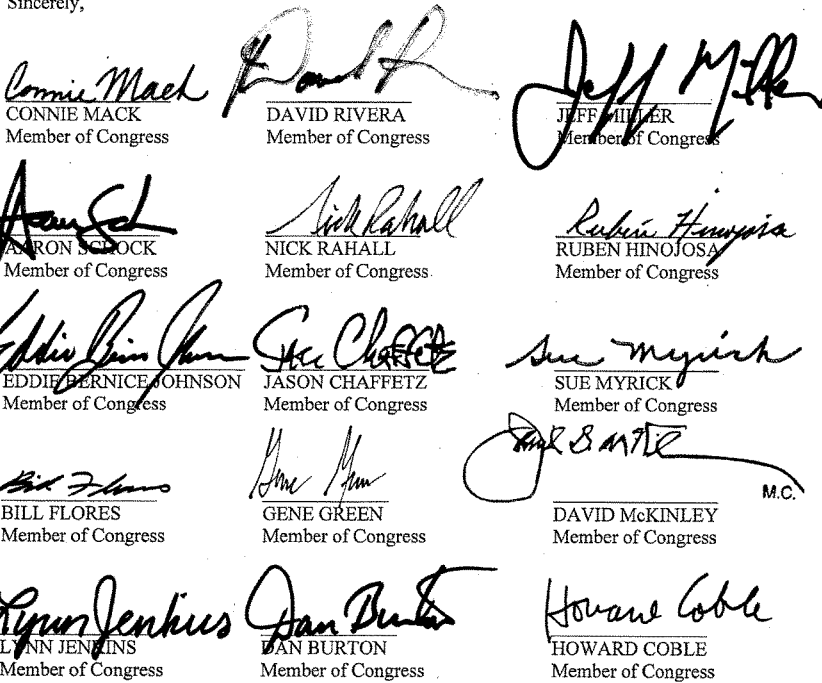 Sincerely,
Connie Mack
CONNIE MACK
Member of Congress
DAVID RIVERA
Member of Congress
Jeff Miller
JEFF MILLER
Member of Congress
AARON SCHOCK
Member of Congress
Nick Rahall
NICK RAHALL
Member of Congress
Rubén Hinojosa
RUBEN HINOJOSA
Member of Congress
EDDIE BERNICE JOHNSON
Member of Congress
Chaffetz
JASON CHAFFETZ
Member of Congress
Sue Myrick
SUE MYRICK
Member of Congress
Bill Flores
BILL FLORES
Member of Congress
Gene Green
GENE GREEN
Member of Congress
M.C.
DAVID McKINLEY
Member of Congress
Lynn Jenkins
LYNN JENKINS
Member of Congress
Dan Burton
DAN BURTON
Member of Congress
Howard Coble
HOWARD COBLE
Member of Congress